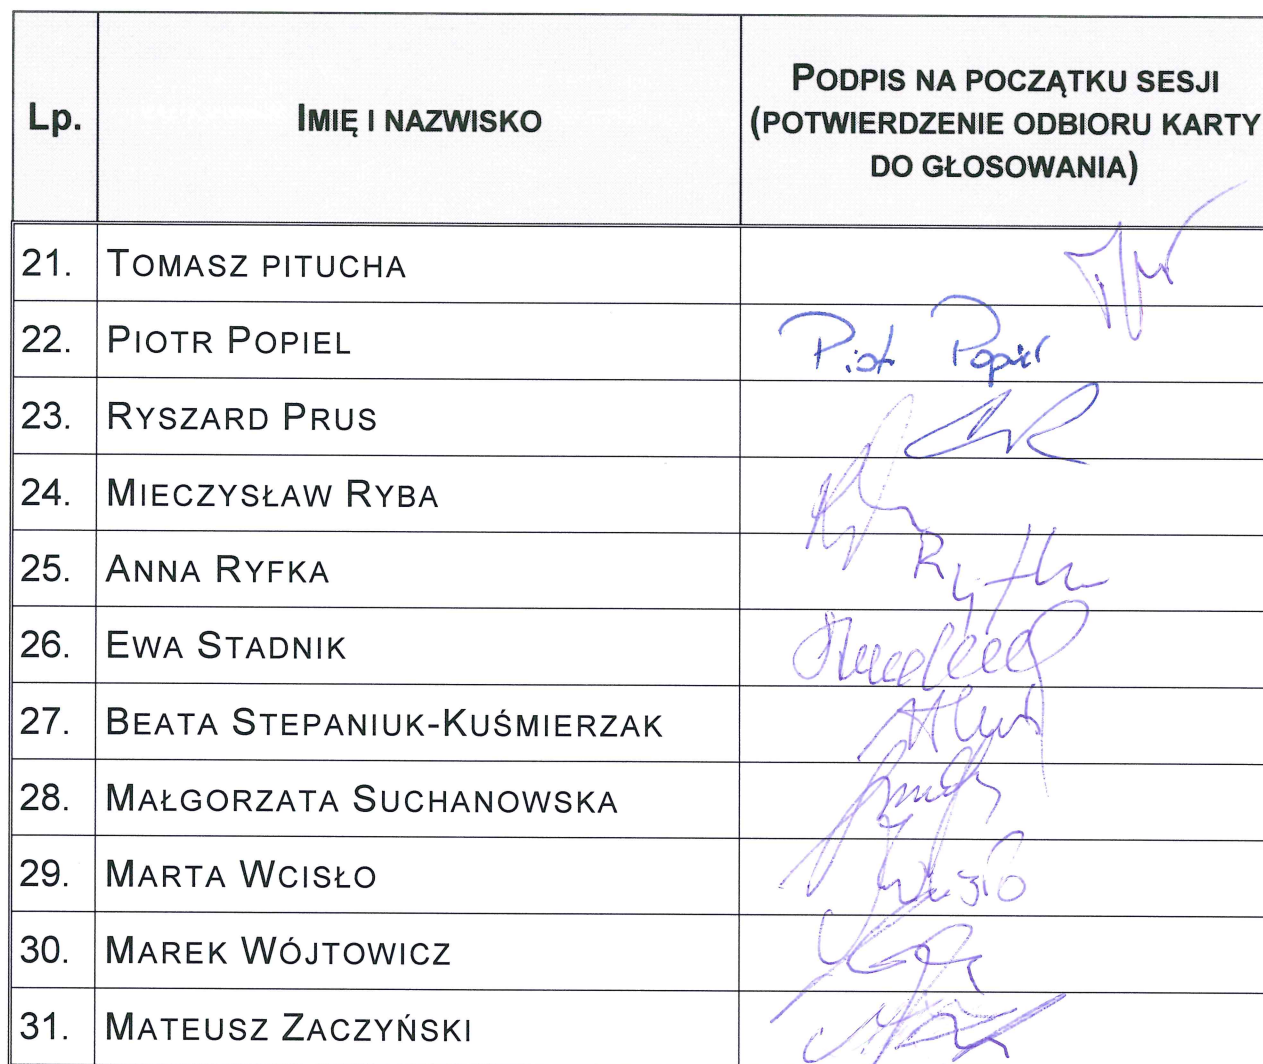 Lp. IMIĘ I NAZWISKO PODPIS NA POCZĄTKU SESJI
(POTWIERDZENIE ODBIORU KARTY
DO GŁOSOWANIA)
21. TOMASZ PITUCHA
22. PIOTR POPIEL Piotr Popiel
23. RYSZARD PRUS
24. MIECZYSŁAW RYBA
25. ANNA RYFKA Ryfka
26. EWA STADNIK
27. BEATA STEPANIUK-KUŚMIERZAK
28. MAŁGORZATA SUCHANOWSKA
29. MARTA WCISŁO Wcisło
30. MAREK WÓJTOWICZ
31. MATEUSZ ZACZYŃSKI